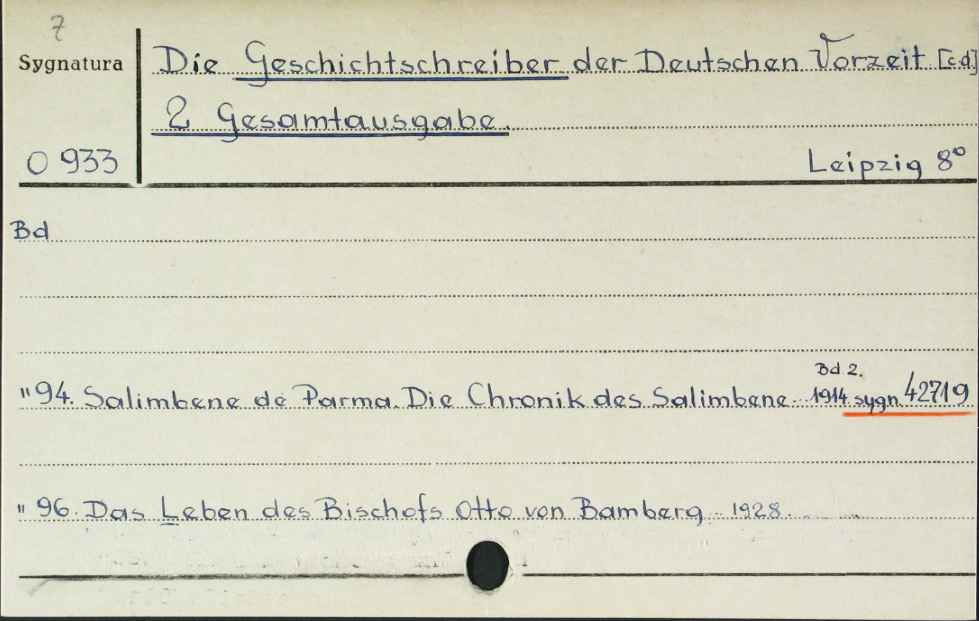 7
Sygnatura Die Geschichtschreiber der Deutschen Vorzeit [cd]
2 Gesamtausgabe
O 933 Leipzig 8°
Bd
Bd 2.
" 94. Salimbene de Parma. Die Chronik des Salimbene 1914 sygn. 42719
" 96. Das Leben des Bischofs Otto von Bamberg - 1928.